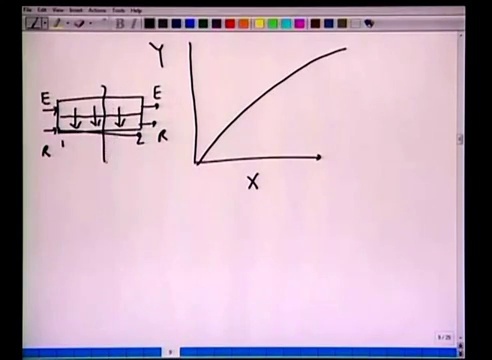 File Edit View Insert Actions Tools Help
B
Y
E E
R 1 2 R
X